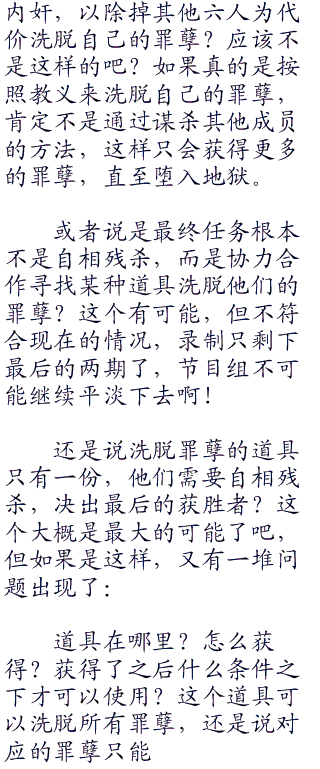 内奸，以除掉其他六人为代
价洗脱自己的罪孽？应该不
是这样的吧？如果真的是按
照教义来洗脱自己的罪孽，
肯定不是通过谋杀其他成员
的方法，这样只会获得更多
的罪孽，直至堕入地狱。
或者说是最终任务根本
不是自相残杀，而是协力合
作寻找某种道具洗脱他们的
罪孽？这个有可能，但不符
合现在的情况，录制只剩下
最后的两期了，节目组不可
能继续平淡下去啊！
还是说洗脱罪孽的道具
只有一份，他们需要自相残
杀，决出最后的获胜者？这
个大概是最大的可能了吧，
但如果是这样，又有一堆问
题出现了：
道具在哪里？怎么获
得？获得了之后什么条件之
下才可以使用？这个道具可
以洗脱所有罪孽，还是说对
应的罪孽只能